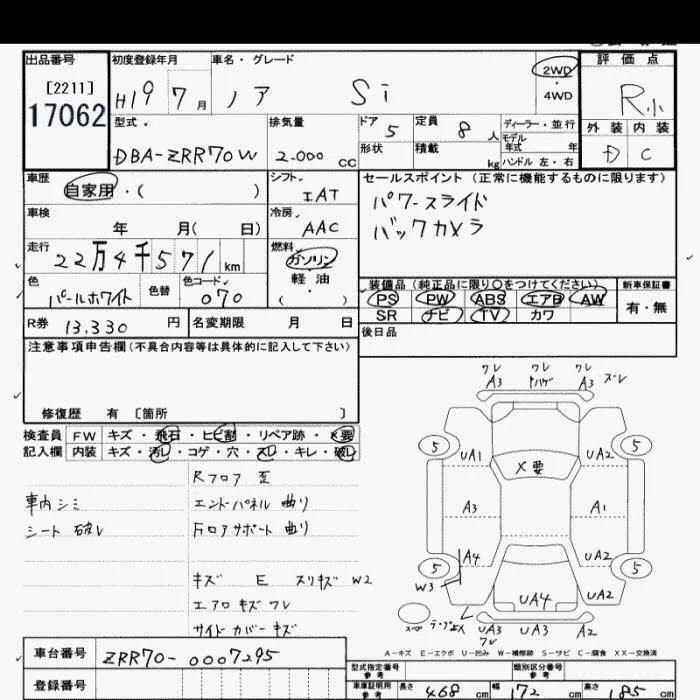 出品番号
[2211]
17062
初度登録年月
H19 7 月
車名・グレード
ノア Si
2WD
・
4WD
評価点
R小
外装 内装
D C
型式
DBA-ZRR70W
排気量
2.000 cc
ドア 5
形状
定員 8 人
積載 kg
ディーラー・並行
モデル年式 年
ハンドル 左・右
車歴
自家用・( )
シフト
IAT
セールスポイント (正常に機能するものに限ります)
パワースライド
バックカメラ
車検
年 月( 日)
冷房
AAC
走行
22万4千571 km
燃料
ガソリン
軽・油
( )
色
パールホワイト
色替
色コード
070
装備品 (純正品に限り○をつけてください)
PS PW ABS エアB AW
SR ナビ TV カワ
新車保証書
有・無
R券 13.330 円
名変期限 月 日
後日品
注意事項申告欄(不具合内容等は具体的に記入して下さい)
修復歴 有 [箇所 ]
検査員 FW キズ・飛石・ヒビ割・リペア跡・×要
記入欄 内装 キズ・汚レ・コゲ・穴・スレ・キレ・破レ
車内シミ
シート 破レ
Rフロア 歪
エンドパネル 曲り
Fロアサポート 曲り
キズ E スリキズ W2
エアロ キズ ワレ
サイドカバー キズ
ワレ A3
ハゲ
ワレ A3 ズレ
5 UA1 X要 UA2 5
A3 A1
A4 UA2
5 W3 5
UA4 UA2
UA3 ワレ
UA3
A2
A-キズ E-エクボ U-凹み W-補修跡 S-サビ C-腐食 XX-交換済
車台番号 ZRR70-0007295
登録番号
型式指定番号
参考
類別区分番号
参考
車庫証明用
参考
長さ 468 cm
幅 172 cm
高さ 185 cm